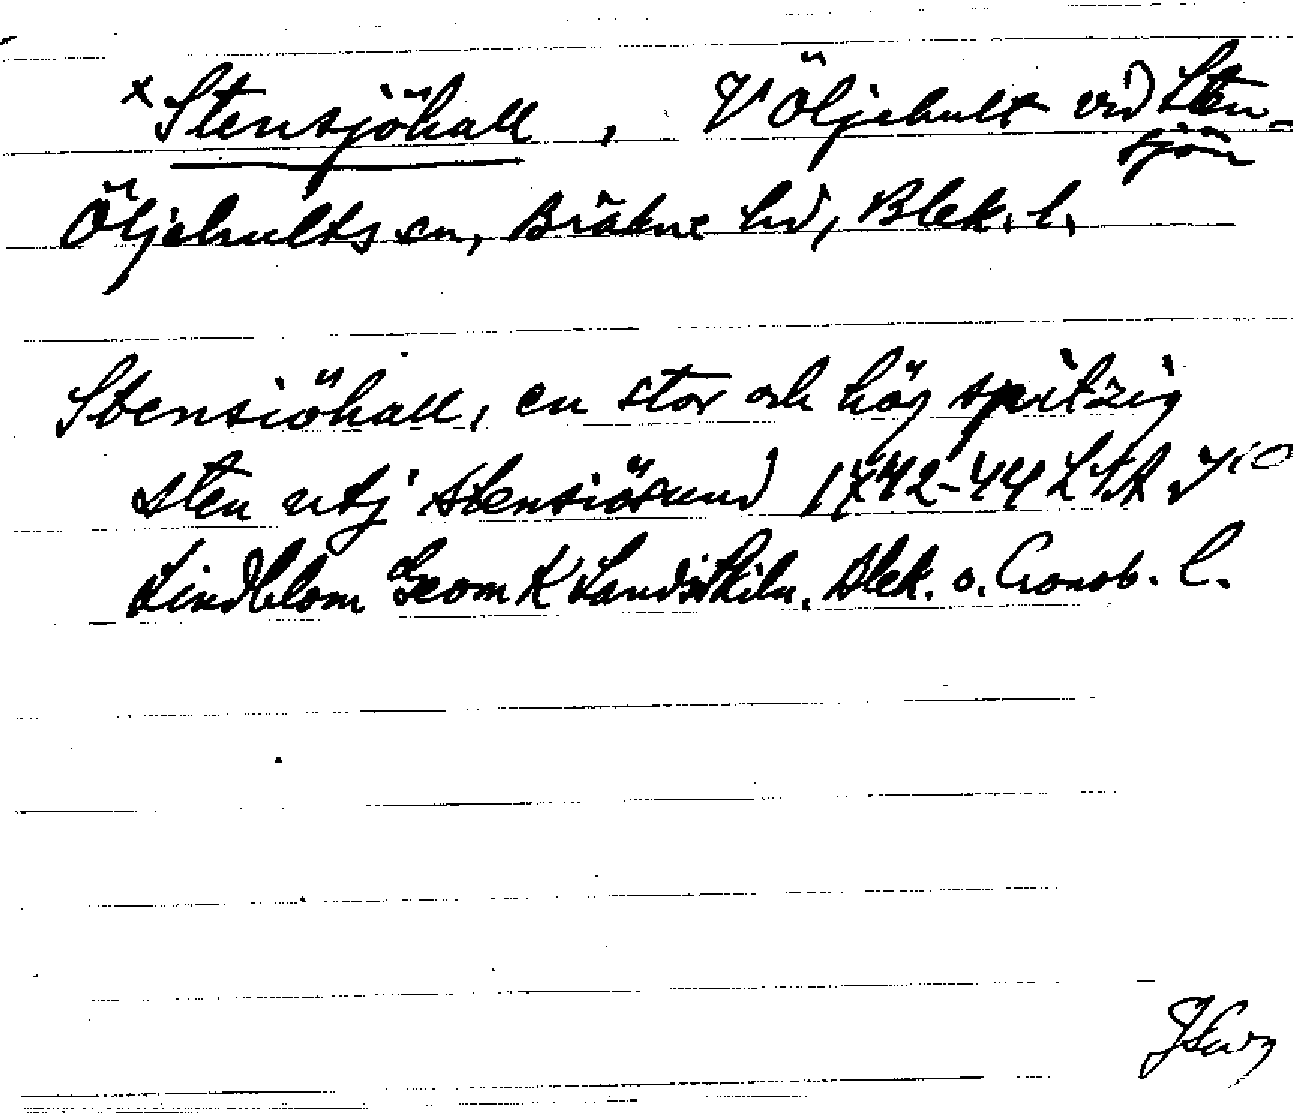 x Stensjöhall, V Öljehult vid Sten-
sjön
Öljehults sn, Bräkne hd, Blek. l.
Stensiöhall, en stor och hög spitzig
sten utj Stensiösund 1742-44 LSA
Lindblom Geom K Landsskiln. Blek. o. Cronob. l.